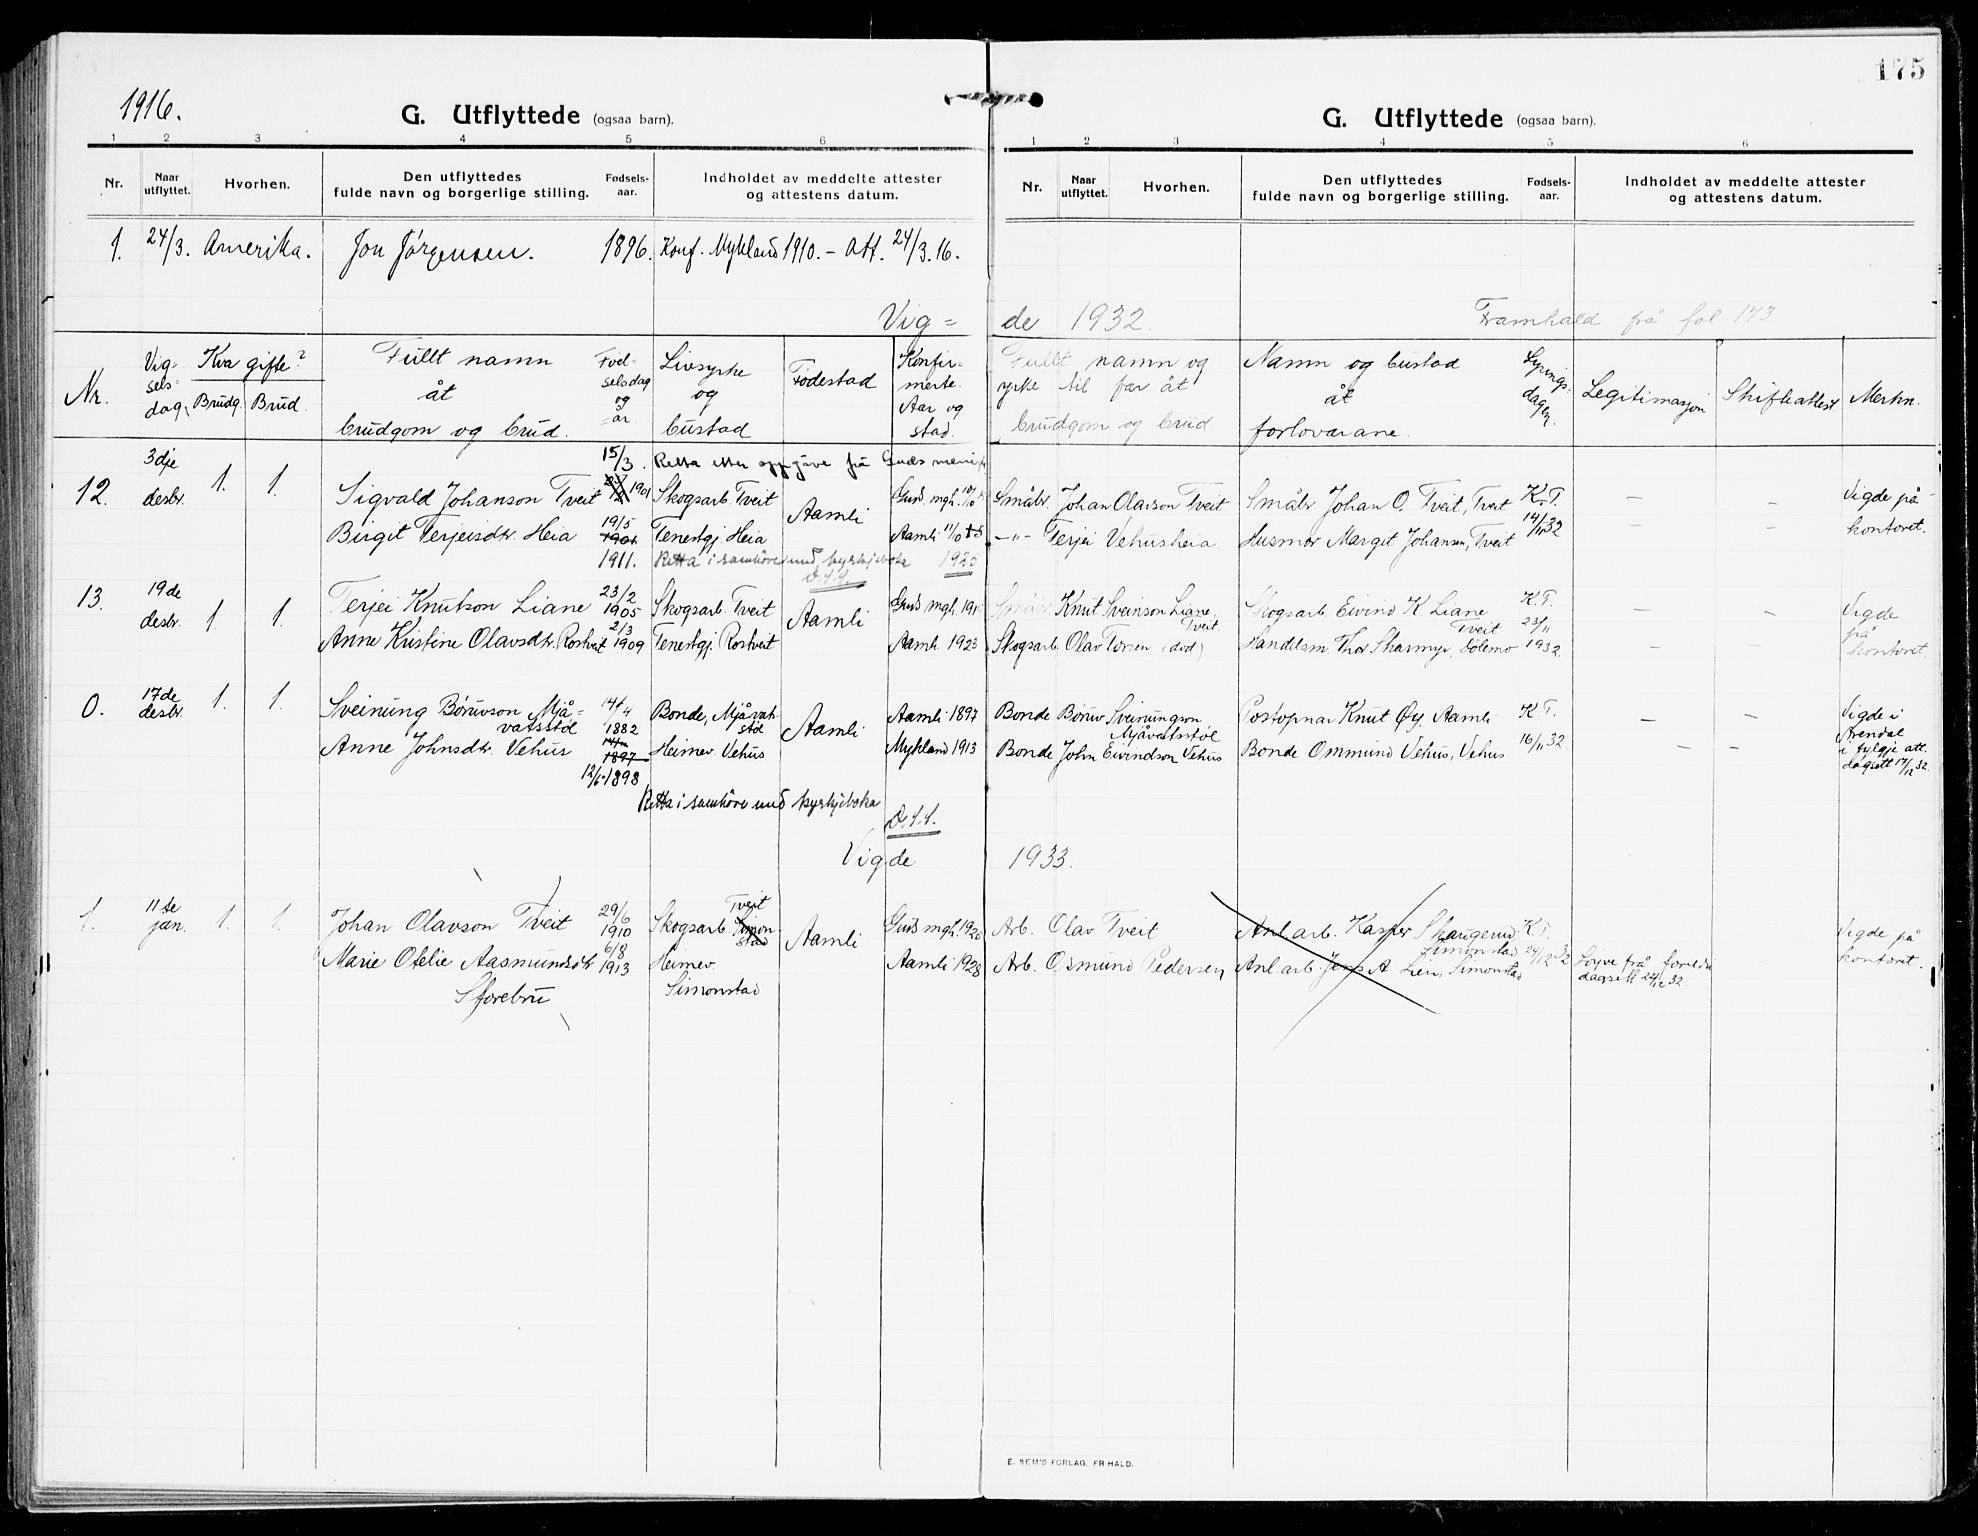 175
1916.
G. Utflyttede (ogsaa barn).
1 2 3 4 5 6
Nr. Naar utflyttet. Hvorhen. Den utflyttedes fulde navn og borgerlige stilling. Fødsels-aar. Indholdet av meddelte attester og attestens datum.
G. Utflyttede (ogsaa barn).
1 2 3 4 5 6
Nr. Naar utflyttet. Hvorhen. Den utflyttedes fulde navn og borgerlige stilling. Fødsels-aar. Indholdet av meddelte attester og attestens datum.
1. 24/3. Amerika. Jon Jørgensen. 1896. Konf. Mykland 1910. - Att. 24/3.16.
Vig= de 1932. Framhald frå fol 173
Nr. Vig=sels=dag. Kva gifte? Brudg. Brud. Fullt namn åt brudgom og brud. Fød-selsdag og =år. Livsyrke og bustad Fødestad Konfir-merte. Aar og stad. Fullt namn og yrke til far åt brudgom og brud Namn og bustad åt forlovarane. Lysings=dagen. Legitimasjon Skifteattest Merkn.
15/3. Retta etter oppgåve frå
12. 3dje desbr. 1. 1. Sigvald Johanson Tveit 1901 Skogsarb. Tveit Aamli Småbr. Johan Olavson Tveit Småbr Johan O. Tveit, Tveit K.T. - - Vigde på
Birgit Terjeisdtr. Heia 19/5 1901 Tenestgj. Heia Aamli -"- Terjei Vehusheia. Husmor Margit Johansen, Tveit 14/11 32 - - kontoret.
1911. Retta i samhøve med kyrkjeboka 1925
D.S.S.
13. 19de desbr. 1. 1. Terjei Knutson Liane 23/2 1905 Skogsarb. Tveit Aamli Småbr. Knut Sveinson Liane, Tveit Skogsarb Eivind K. Liane Tveit K.T. - - Vigde
Anne Kristine Olavsdtr. Rostveit 2/3 1909 Tenestgj. Rostveit Aamli 1923 Skogsarb. Olav Torsen (død) Handelsm Tho Skarmyr, Dølemo 23/11 1932. - - på kontoret.
0. 17de desbr. 1. 1. Sveinung Børuvson Mjå=vatsstøl 1882 Bonde, Mjåvatsstøl Aamli Aamli 1897 Bonde Børuv Sveinungson Mjåvatsstøl Postopnar Knut Øy, Aamli K.T. - - Vigde i Arendal
Anne Johnsdtr. Vehus 1897 Heimev. Vehus Mykland 1913 Bonde John Eivindson Vehus Bonde Ommund Vehus, Vehus 16/11 32 - - i fylgje att. dagsett 17/12 32.
12/6 1898
Retta i samhøve med kyrkjeboka
D.S.S.
Vigde 1933.
1. 11te jan. 1. 1. Johan Olavson Tveit 29/6 1910 Skogsarb. Simonstad Tveit Aamli Arb. Olav Tveit Anl arb. Kasper Skaugerud Simonstad K.T. Vigde på
Marie Otelie Aasmundsdtr 6/8 1913 Heimev. Aamli 1928 Arb. Osmund Pedersen, Anl arb. Jens A Lien, Simonstad 24/12 32 Løyve frå foreldri kontoret.
Storebru Simonstad dagsett 24/12 32.
E. SEM'S FORLAG. FR HALD.